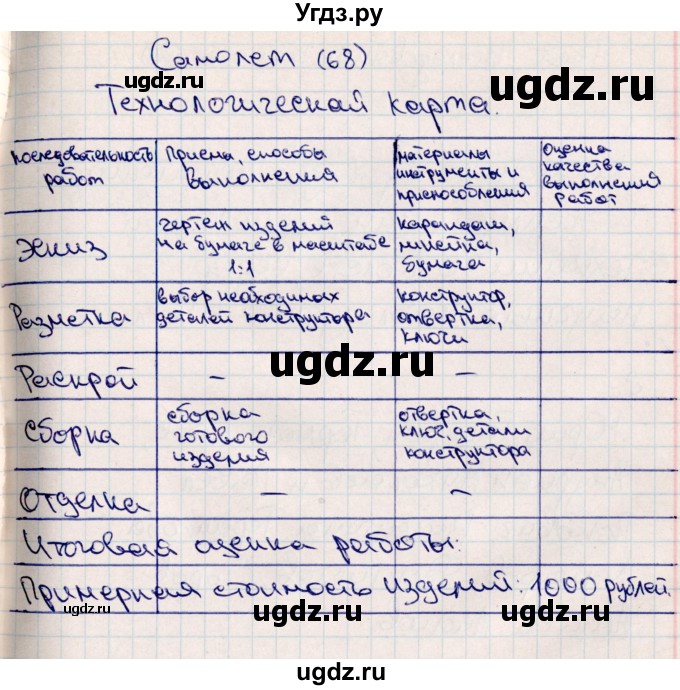 Угдз.ру
Самолет (68)
ugdz.ru
ugdz.ru
ugdz.ru
Технологическая карта.
последовательность
работ
Приемы, способы
выполнения
материалы
инструменты и
приспособления
оценка
качества
выполнения
работ
Эскиз
чертеж изделий
на бумаге в масштабе
1:1
карандаш,
линейка,
бумага
ugdz.ru
ugdz.ru
Разметка
выбор необходимых
деталей конструктора
конструктор,
отвертка,
ключи
ugdz.ru
ugdz.ru
Раскрой
–
–
Сборка
сборка
готового
изделия
отвертка,
ключ, детали
конструктора
ugdz.ru
ugdz.ru
Отделка
–
–
Итоговая оценка работы:
ugdz.ru
ugdz.ru
Примерная стоимость изделий: 1000 рублей.
ugdz.ru
ugdz.ru
ugdz.ru
ugdz.ru